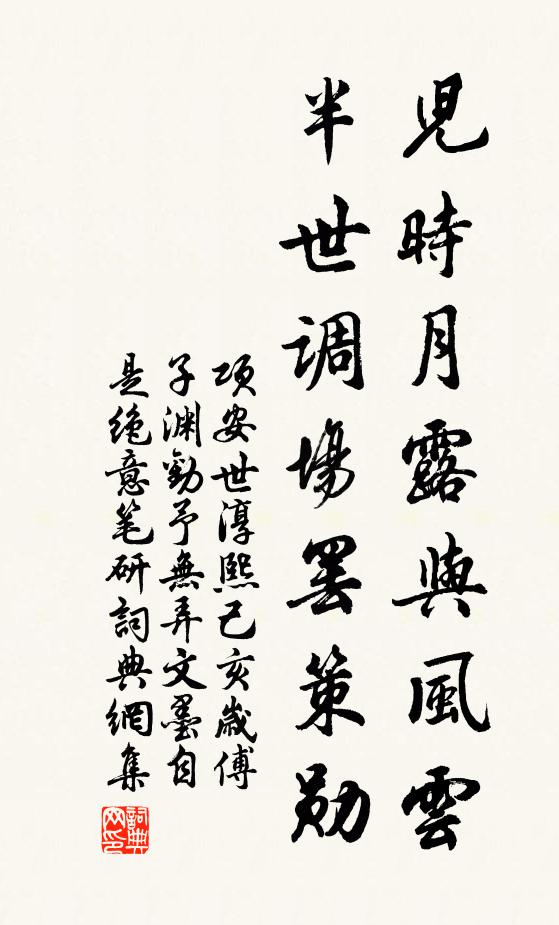 兒時月露與風雲
半世調場罷策勛
項安世淳熙己亥歲傅
子淵勸予無弄文墨自
是絶意笔研詞典網集
詞典
网印